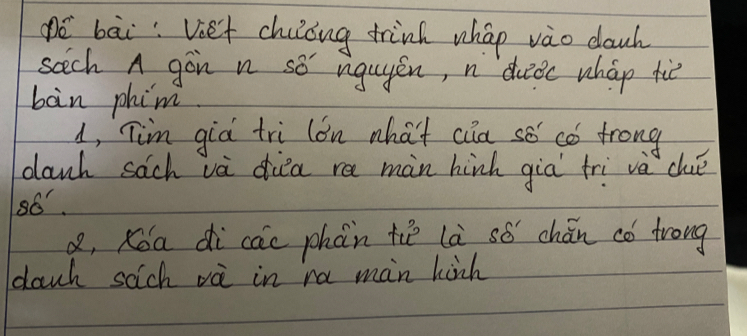 Đề bài : Viết chương trình nhập vào danh
sách A gồn n số nguyên, n được nhập từ
bàn phím.
1, Tìm giá trị lớn nhất của số có trong
danh sách và đưa ra màn hình giá trị và chỉ
số.
2, Xóa đi các phần tử là số chẵn có trong
danh sách và in ra màn hình